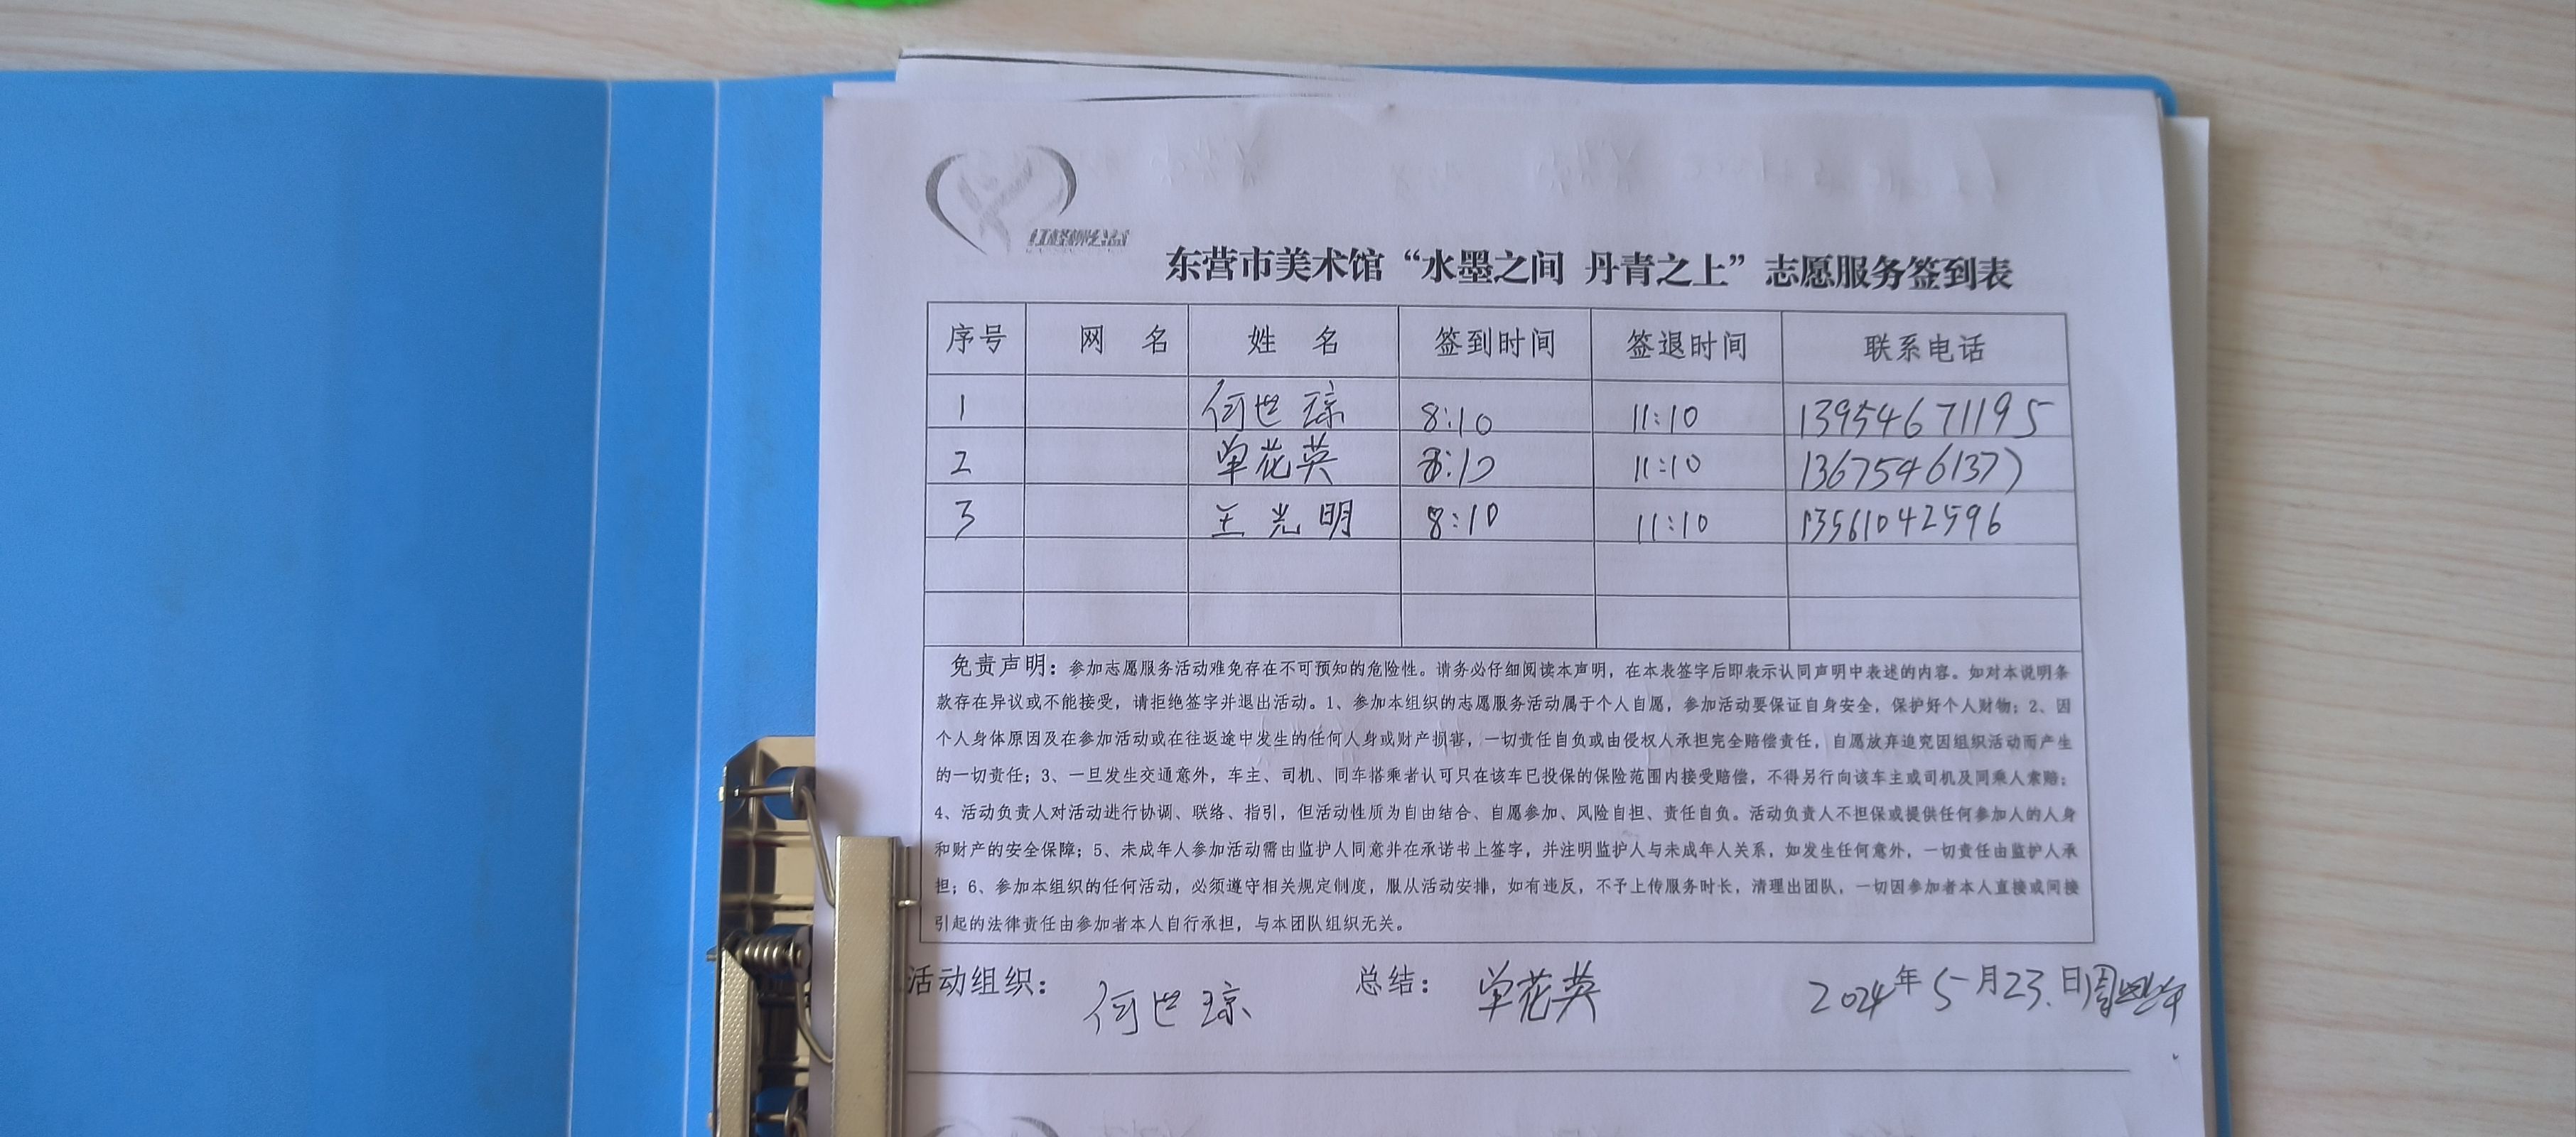 红柽柳公益
东营市美术馆“水墨之间 丹青之上”志愿服务签到表
序号 网 名 姓 名 签到时间 签退时间 联系电话
1 何世琼 8:10 11:10 13954671195
2 单花英 8:10 11:10 13675461377
3 王光明 8:10 11:10 13561042596
免责声明：参加志愿服务活动难免存在不可预知的危险性。请务必仔细阅读本声明，在本表签字后即表示认同声明中表述的内容。如对本说明条
款存在异议或不能接受，请拒绝签字并退出活动。1、参加本组织的志愿服务活动属于个人自愿，参加活动要保证自身安全，保护好个人财物；2、因
个人身体原因及在参加活动或在往返途中发生的任何人身或财产损害，一切责任自负或由侵权人承担完全赔偿责任，自愿放弃追究因组织活动而产生
的一切责任；3、一旦发生交通意外，车主、司机、同车搭乘者认可只在该车已投保的保险范围内接受赔偿，不得另行向该车主或司机及同乘人索赔；
4、活动负责人对活动进行协调、联络、指引，但活动性质为自由结合、自愿参加、风险自担、责任自负。活动负责人不担保或提供任何参加人的人身
和财产的安全保障；5、未成年人参加活动需由监护人同意并在承诺书上签字，并注明监护人与未成年人关系，如发生任何意外，一切责任由监护人承
担；6、参加本组织的任何活动，必须遵守相关规定制度，服从活动安排，如有违反，不予上传服务时长，清理出团队，一切因参加者本人直接或间接
引起的法律责任由参加者本人自行承担，与本团队组织无关。
活动组织： 何世琼 总结： 单花英 2024年5月23.日周四上午